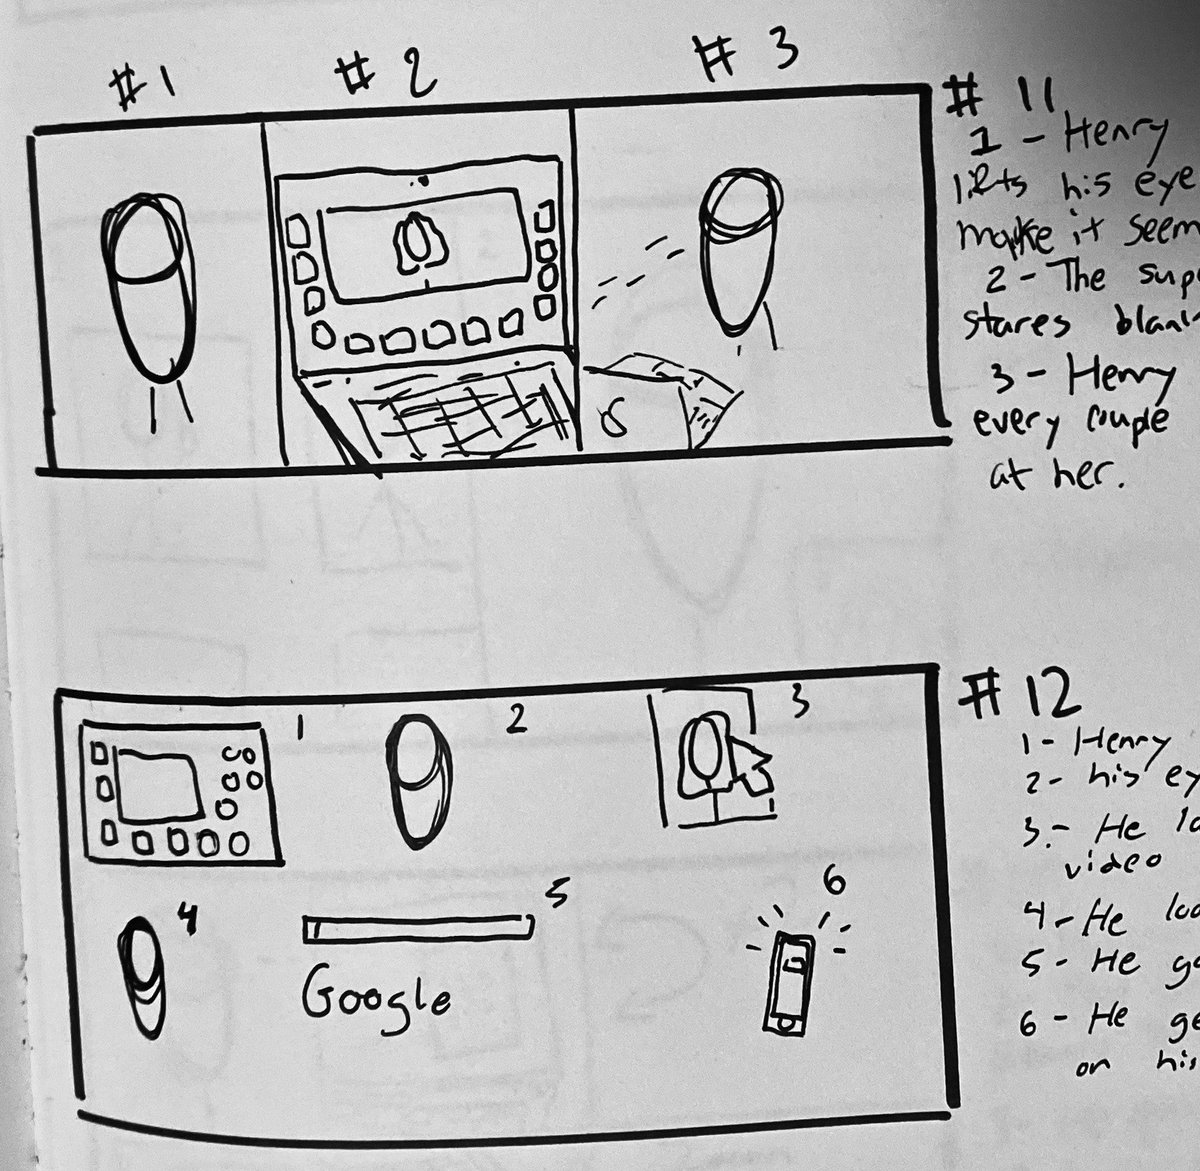 #1
#2
#3
# 11
1 - Henry
lifts his eye
make it seem
2 - The sup
stares blank
3 - Henry
every couple
at her.
# 12
1
2
3
4
5
6
Google
1 - Henry
2 - his ey
3 - He lo
video
4 - He loo
5 - He ge
6 - He ge
on his